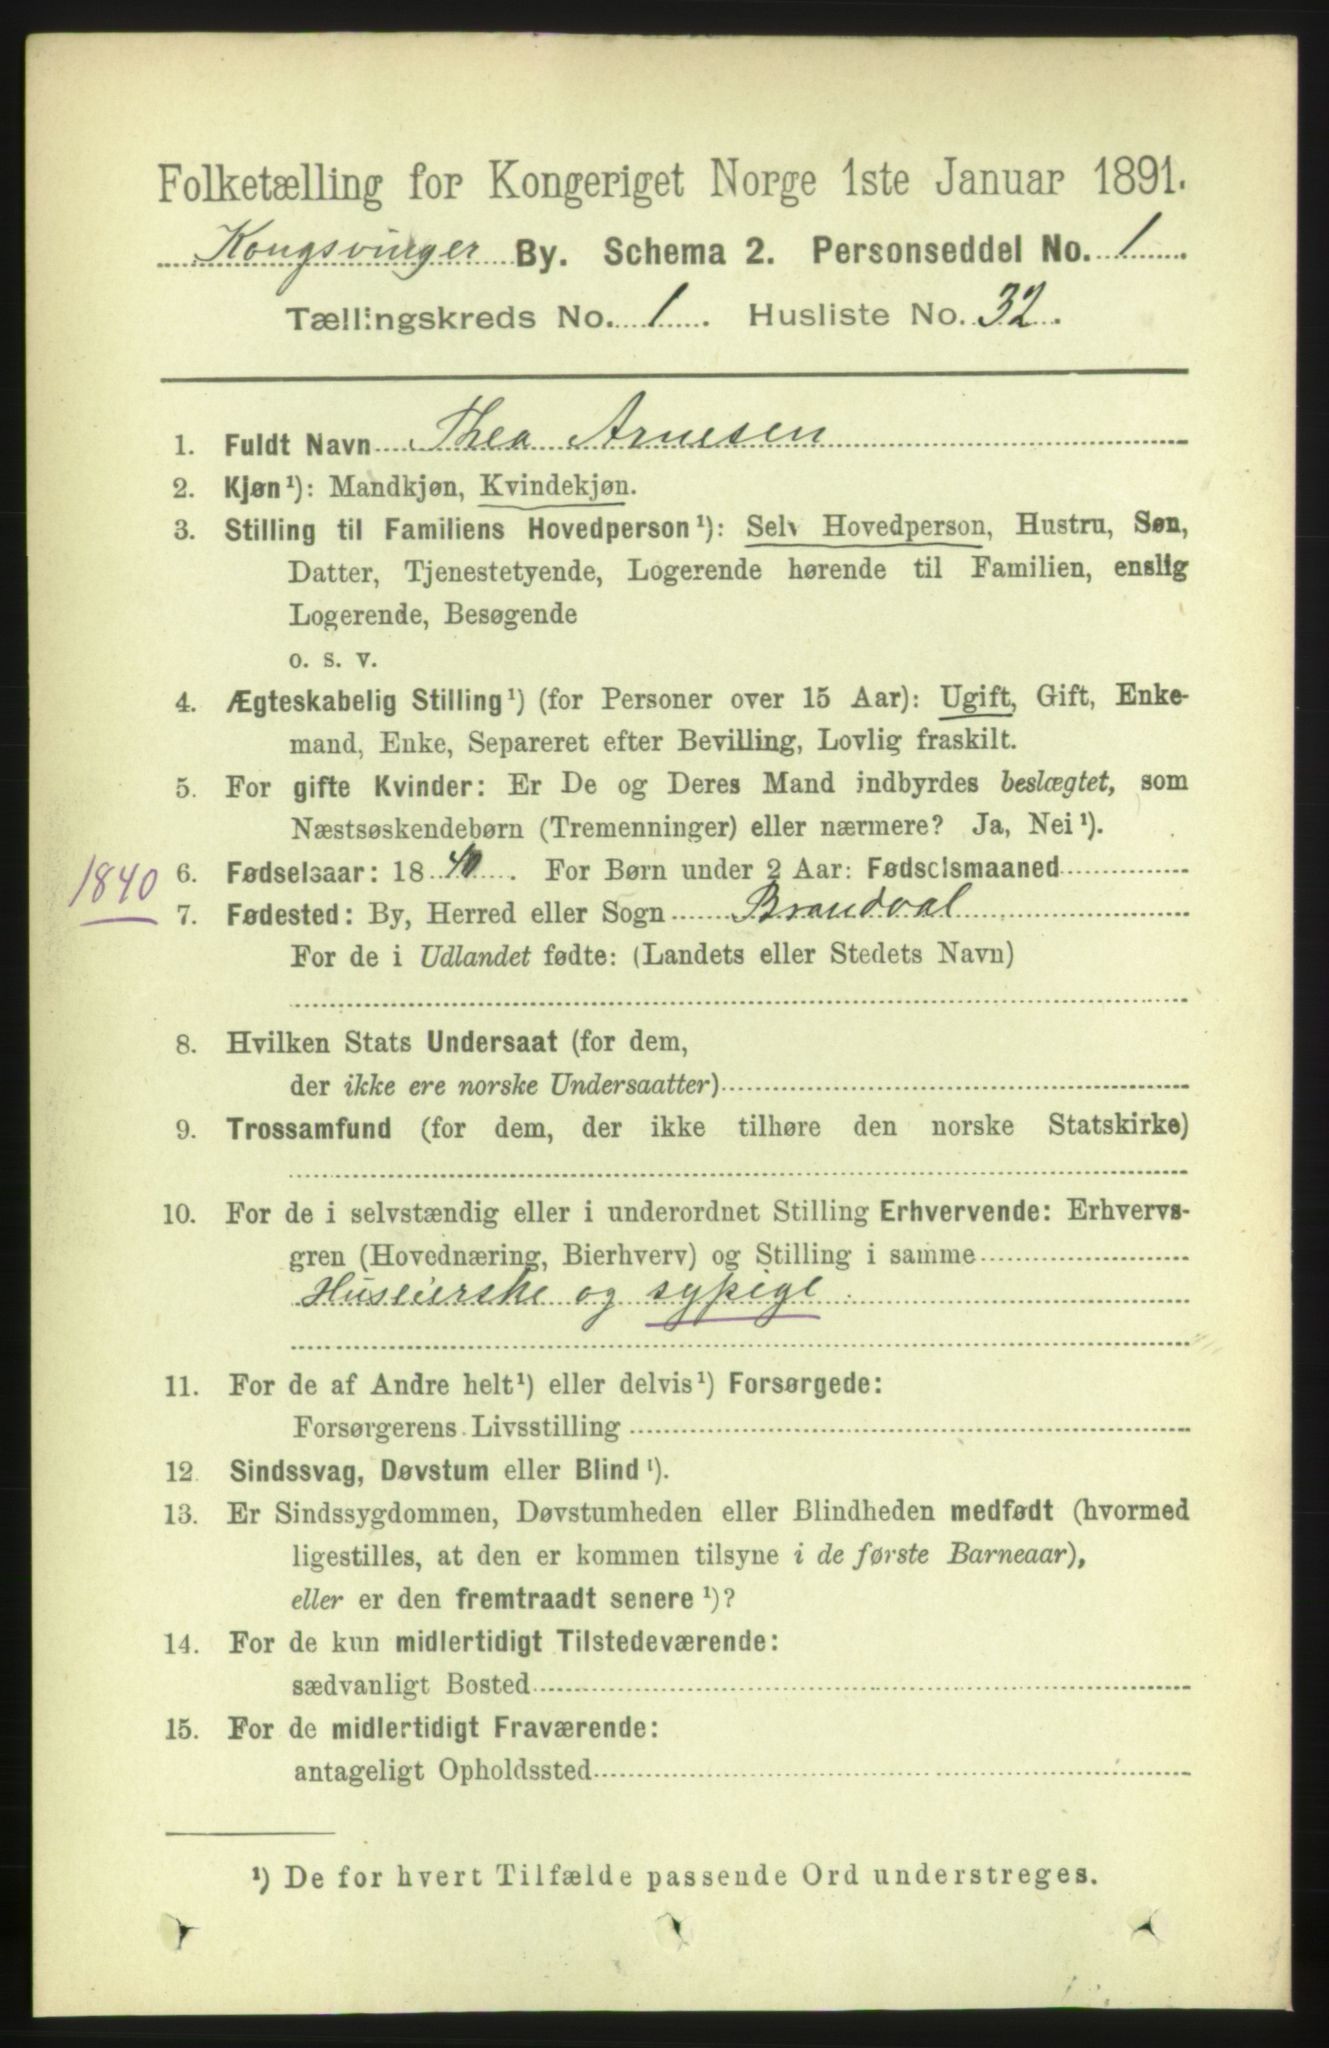 Folketælling for Kongeriget Norge 1ste Januar 1891.
Kongsvinger By. Schema 2. Personseddel No. 1
Tællingskreds No. 1. Husliste No. 32.
1. Fuldt Navn Thea Arnesen
2. Kjøn¹): Mandkjøn, Kvindekjøn.
3. Stilling til Familiens Hovedperson¹): Selv Hovedperson, Hustru, Søn,
Datter, Tjenestetyende, Logerende hørende til Familien, enslig
Logerende, Besøgende
o. s. v.
4. Ægteskabelig Stilling¹) (for Personer over 15 Aar): Ugift, Gift, Enke-
mand, Enke, Separeret efter Bevilling, Lovlig fraskilt.
5. For gifte Kvinder: Er De og Deres Mand indbyrdes beslægtet, som
Næstsøskendebørn (Tremenninger) eller nærmere? Ja, Nei¹).
1840
6. Fødselsaar: 1840. For Børn under 2 Aar: Fødselsmaaned
7. Fødested: By, Herred eller Sogn Brandval
For de i Udlandet fødte: (Landets eller Stedets Navn)
8. Hvilken Stats Undersaat (for dem,
der ikke ere norske Undersaatter)
9. Trossamfund (for dem, der ikke tilhøre den norske Statskirke)
10. For de i selvstændig eller i underordnet Stilling Erhvervende: Erhvervs-
gren (Hovednæring, Bierhverv) og Stilling i samme
Huseierske og sypige
11. For de af Andre helt¹) eller delvis¹) Forsørgede:
Forsørgerens Livsstilling
12. Sindssvag, Døvstum eller Blind¹).
13. Er Sindssygdommen, Døvstumheden eller Blindheden medfødt (hvormed
ligestilles, at den er kommen tilsyne i de første Barneaar),
eller er den fremtraadt senere¹)?
14. For de kun midlertidigt Tilstedeværende:
sædvanligt Bosted
15. For de midlertidigt Fraværende:
antageligt Opholdssted
¹) De for hvert Tilfælde passende Ord understreges.